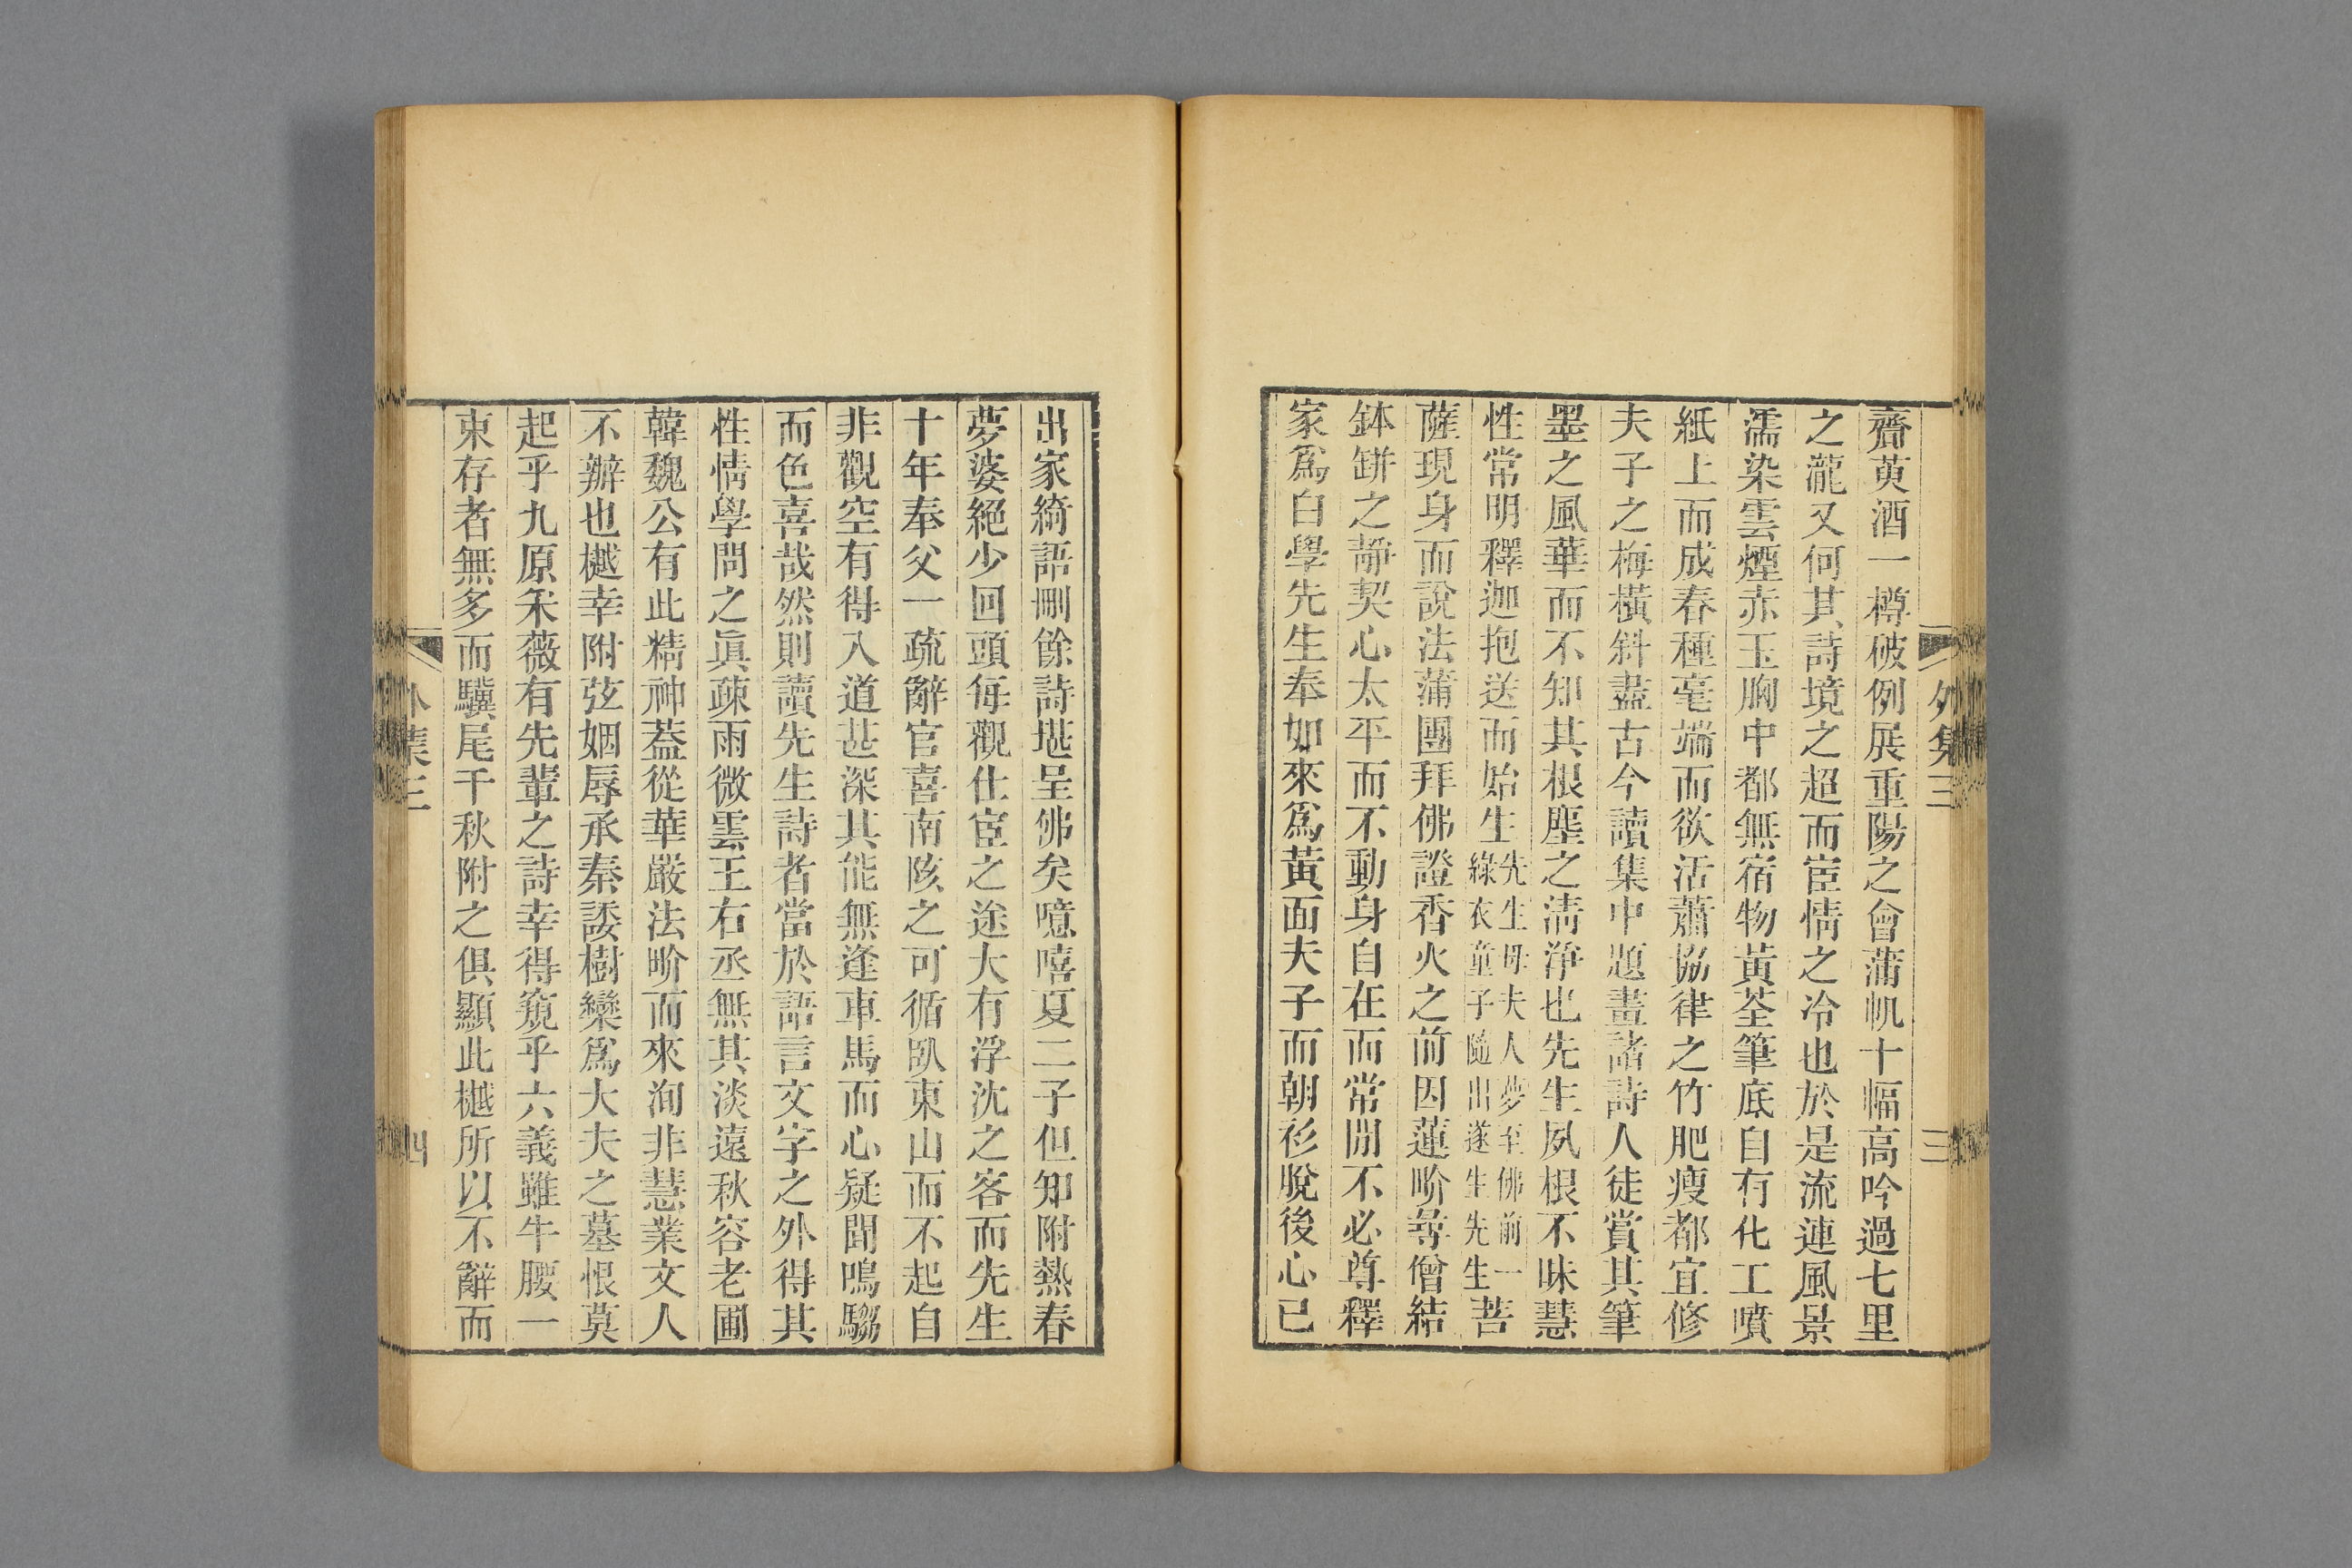 外集三
三
齊萸酒一樽破例展重陽之會蒲帆十幅高吟過七里
之瀧又何其詩境之超而宦情之冷也於是流連風景
濡染雲煙赤玉胸中都無宿物黃荃筆底自有化工噴
紙上而成春種毫端而欲活蕭協律之竹肥瘦都宜修
夫子之梅橫斜盡古今讀集中題畫諸詩人徒賞其筆
墨之風華而不知其根塵之清淨也先生夙根不昧慧
性常明釋迦抱送而始生先生母夫人夢至佛前一綠衣童子隨出遂生先生菩
薩現身而說法蒲團拜佛證香火之前因蓮界尋僧結
鉢缾之靜契心太平而不動身自在而常閒不必尊釋
家爲白學先生奉如來爲黃面夫子而朝衫脫後心已
出家綺語刪餘詩堪呈佛矣噫嘻夏二子但知附熱春
夢婆絕少回頭每觀仕宦之途大有浮沈之客而先生
十年奉父一疏辭官喜南陔之可循臥東山而不起自
非觀空有得入道甚深其能無逢車馬而心疑聞鳴騶
而色喜哉然則讀先生詩者當於語言文字之外得其
性情學問之眞疎雨微雲王右丞無其淡遠秋容老圃
韓魏公有此精神蓋從華嚴法界而來洵非慧業文人
不辦也樾幸附弦姻辱承秦諉樹欒爲大夫之墓恨莫
起乎九原采薇有先輩之詩幸得窺乎六義雖牛腰一
束存者無多而驥尾千秋附之俱顯此樾所以不辭而
外集三
四